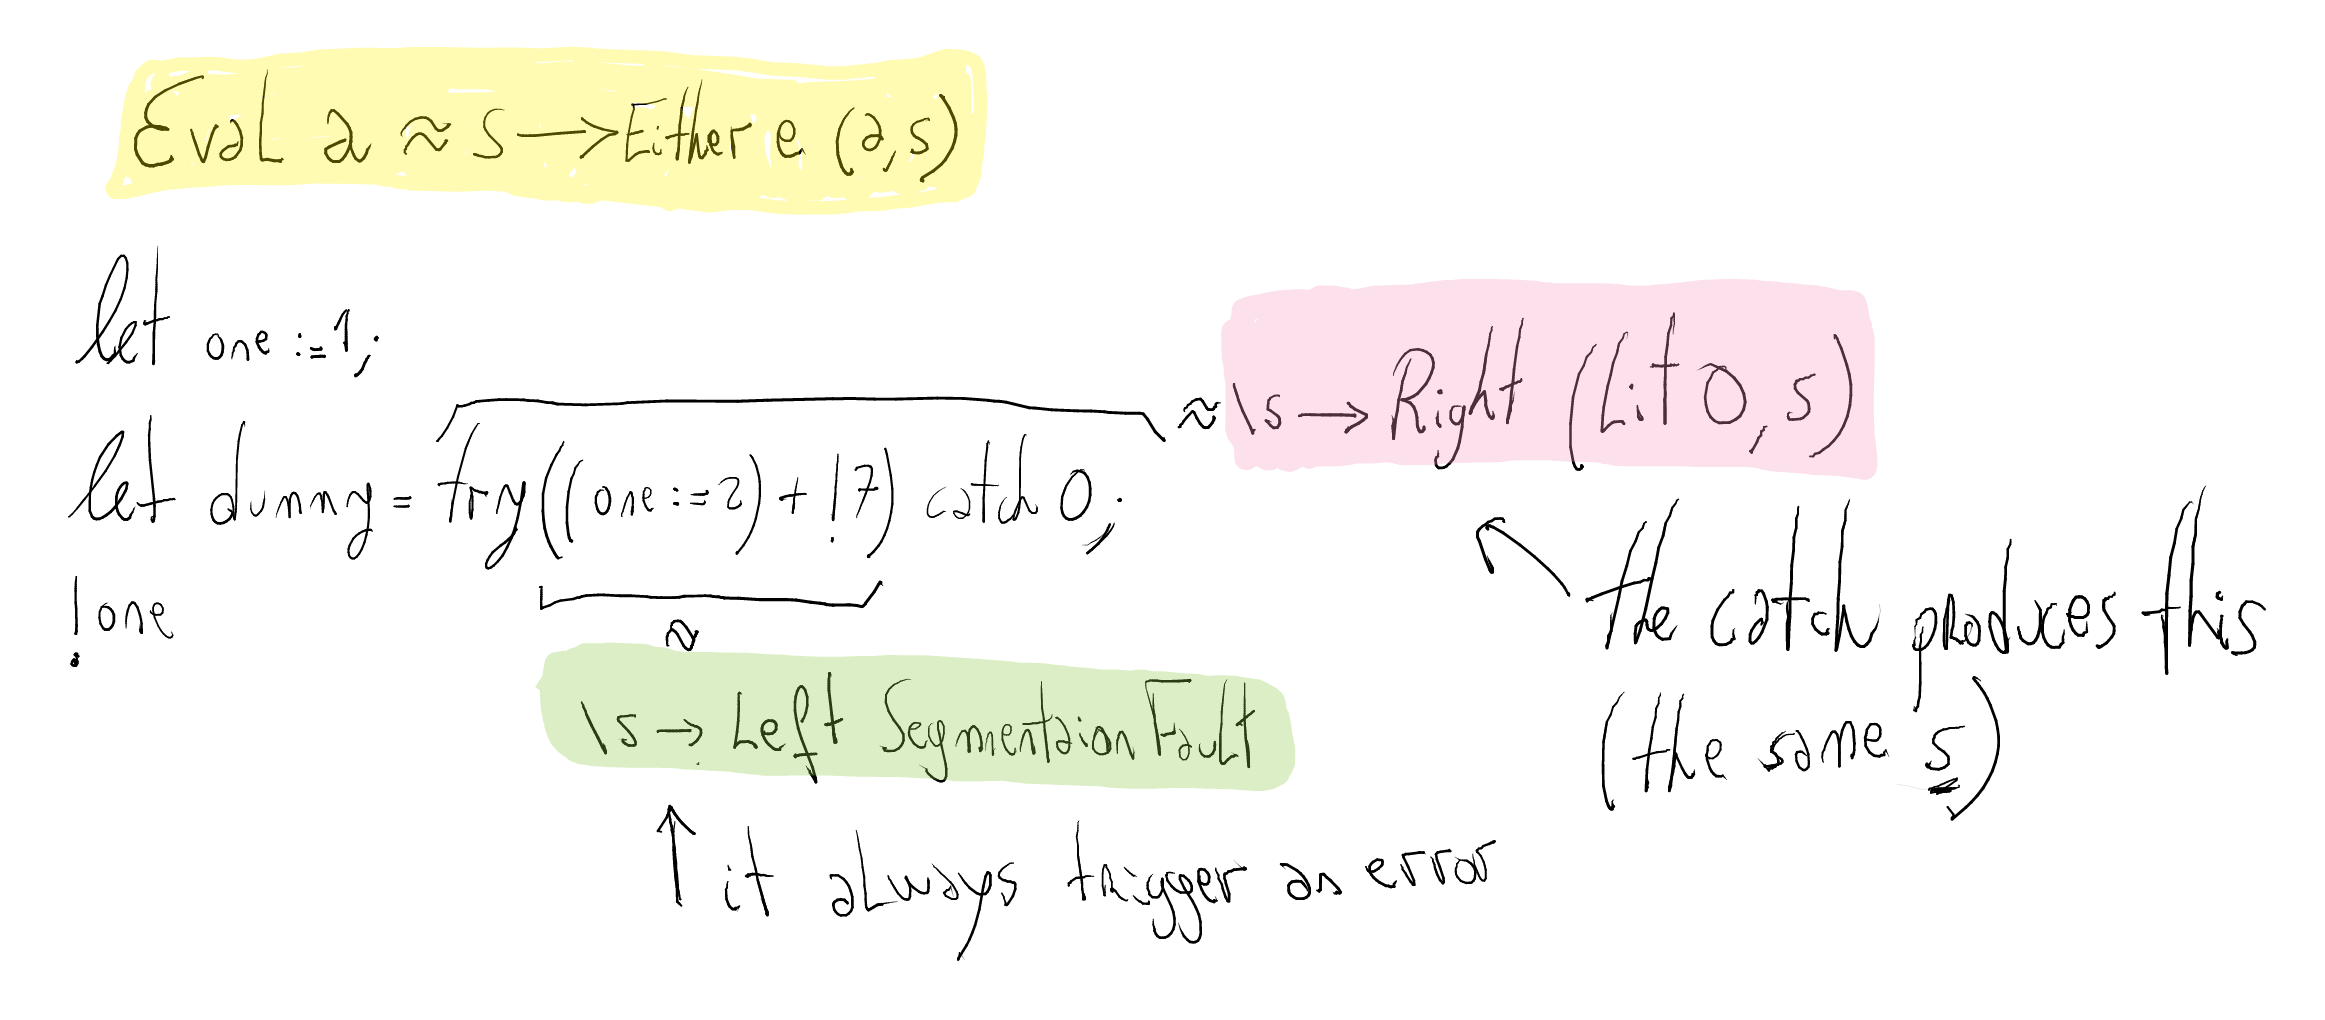 Eval a ≈ s → Either e (a,s)
let one := 1;
≈ \s → Right (Lit 0, s)
let dummy = try((one := 2) + !7) catch 0;
!one
≈
the catch produces this
(the same s)
\s → Left SegmentaionFault
it always trigger an error